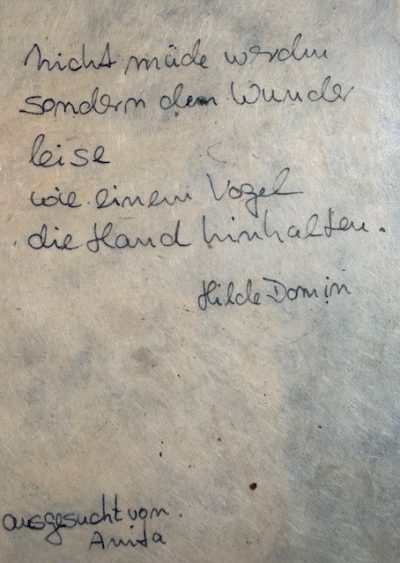 nicht müde werden
sondern dem Wunder
leise
wie einem Vogel
die Hand hinhalten.
Hilde Domin
ausgesucht von
Anita